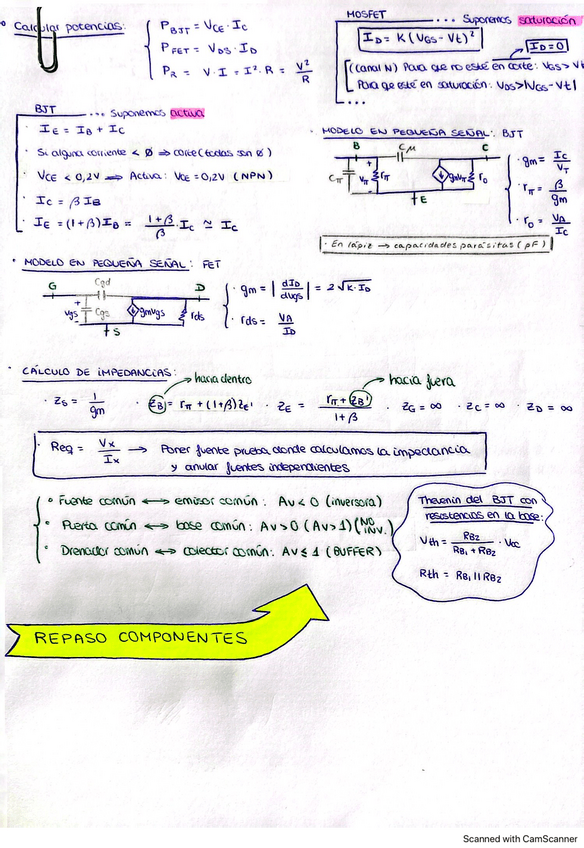 Calcular potencias:
P_BJT = V_CE · I_C
P_FET = V_DS · I_D
P_R = V · I = I² · R = V²/R
MOSFET ... Suponemos saturación
I_D = K(V_GS - Vt)²
I_D = 0
(Canal N) Para que no esté en corte: V_GS > Vt
Para que esté en saturación: V_DS > |V_GS - Vt|
...
BJT ... Suponemos activa
· I_E = I_B + I_C
· Si alguna corriente < 0 ⇒ corte (todas son 0)
· V_CE < 0,2V ⇒ Activa: V_CE = 0,2V (NPN)
· I_C = β I_B
· I_E = (1+β) I_B = (1+β)/β · I_C ≃ I_C
· MODELO EN PEQUEÑA SEÑAL: BJT
B Cμ C
Cπ + Vπ - rπ gmVπ r_o
E
· gm = I_C/V_T
· rπ = β/gm
· r_o = V_A/I_C
· En lápiz → capacidades parásitas (pF)
· MODELO EN PEQUEÑA SEÑAL: FET
G Cgd D
+ Vgs - Cgs gmVgs rds
S
· gm = |dI_D/dVgs| = 2√(K·I_D)
· rds = V_A/I_D
· CÁLCULO DE IMPEDANCIAS:
hacia dentro
hacia fuera
· Z_S = 1/gm · Z_B = rπ + (1+β)Z_E' · Z_E = (rπ + Z_B')/(1+β) · Z_G = ∞ · Z_C = ∞ · Z_D = ∞
Req = Vx/Ix → Poner fuente prueba donde calculamos la impedancia
y anular fuentes independientes
· Fuente común ↔ emisor común: Av < 0 (inversora)
· Puerta común ↔ base común: Av > 0 (Av > 1) (NO INV.)
· Drenador común ↔ colector común: Av ≤ 1 (BUFFER)
Thevenin del BJT con
resistencias en la base:
Vth = R_B2/(R_B1 + R_B2) · Vcc
Rth = R_B1 || R_B2
REPASO COMPONENTES
Scanned with CamScanner